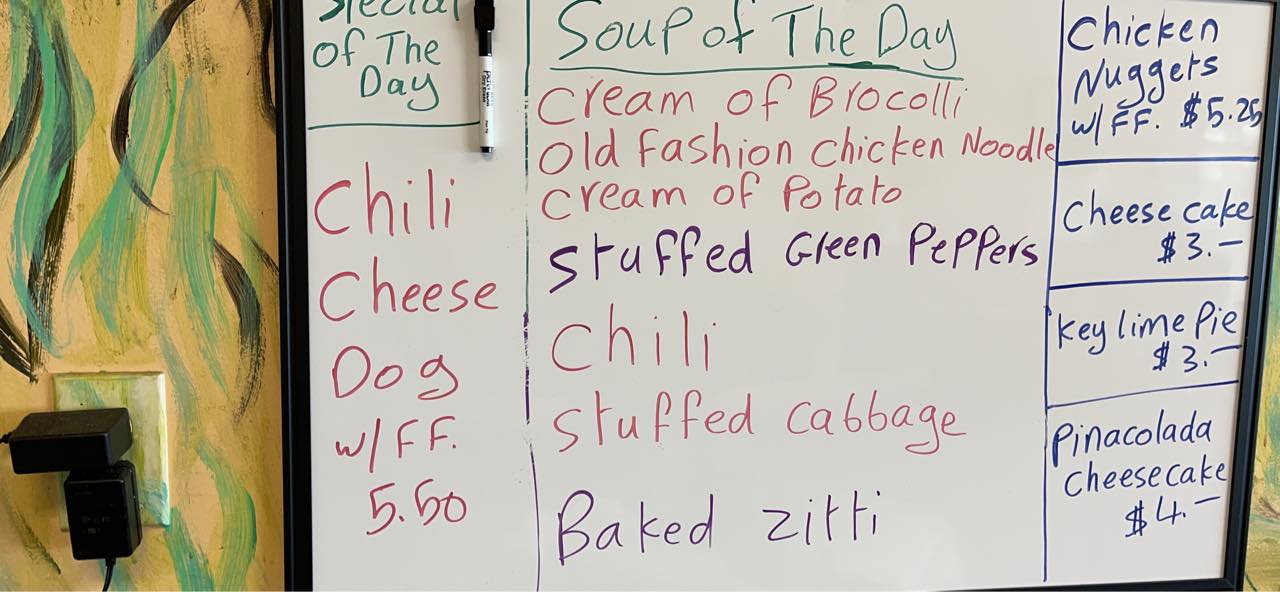 Special
of The
Day
Chili
Cheese
Dog
w/FF.
5.50
Soup of The Day
Cream of Brocolli
Old Fashion Chicken Noodle
Cream of Potato
Stuffed Green Peppers
Chili
Stuffed Cabbage
Baked Zitti
Chicken
Nuggets
w/FF. $5.25
Cheese cake
$3.—
Key lime Pie
$3.—
Pinacolada
Cheesecake
$4.—